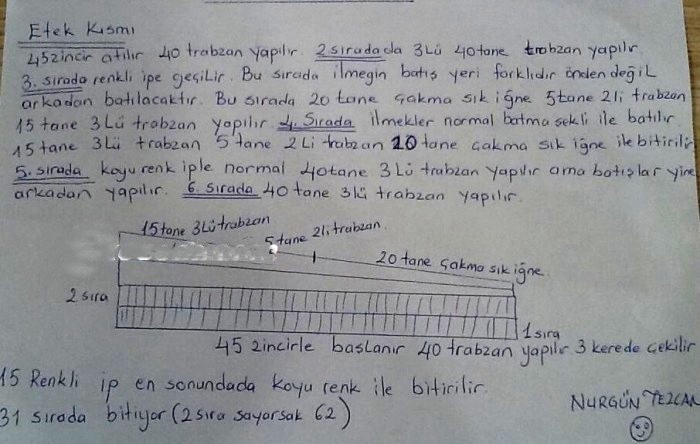 Etek Kısmı
45zincir atılır 40 trabzan yapılır. 2 sıradada 3Lü 40tane trabzan yapılır
3. sırada renkli ipe geçilir. Bu sırada ilmeğin batış yeri farklıdır önden değil
arkadan batılacaktır. Bu sırada 20 tane çakma sık iğne 5tane 2li trabzan
15 tane 3Lü trabzan yapılır 4. Sırada ilmekler normal batma şekli ile batılır
15 tane 3Lü trabzan 5 tane 2Li trabzan 20 tane çakma sık iğne ile bitirilir
5. sırada koyu renk iple normal 40tane 3Lü trabzan yapılır ama batışlar yine
arkadan yapılır. 6. sırada 40 tane 3lü trabzan yapılır.
15tane 3Lü trabzan
5 tane 2li trabzan.
20 tane çakma sık iğne
2 sıra
1 sıra
45 zincirle başlanır 40 trabzan yapılır 3 kerede çekilir
15 Renkli ip en sonundada koyu renk ile bitirilir.
31 sırada bitiyor (2 sıra sayarsak 62)
NURGÜN TEZCAN